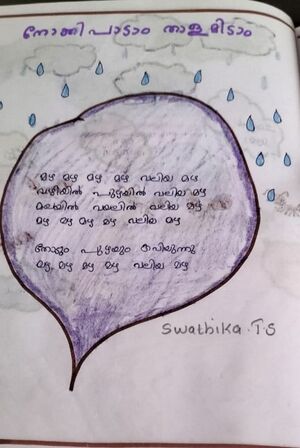 നോക്കി പാടാം താളമിടാം
മഴ മഴ മഴ മഴ വലിയ മഴ
വഴിയിൽ പുഴയിൽ വലിയ മഴ
മലയിൽ വയലിൽ വലിയ മഴ
മഴ മഴ മഴ മഴ വലിയ മഴ
തോടും പുഴയും കവിയുന്നു
മഴ മഴ മഴ മഴ വലിയ മഴ
Swathika.T.S